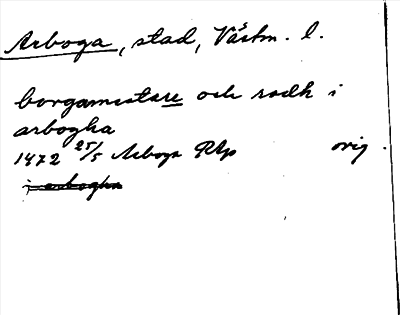 Arboga, stad, Västm. l.
borgamestare och radh i
arbogha
1472 25/5 Arboga RAp orig.
i arbogha